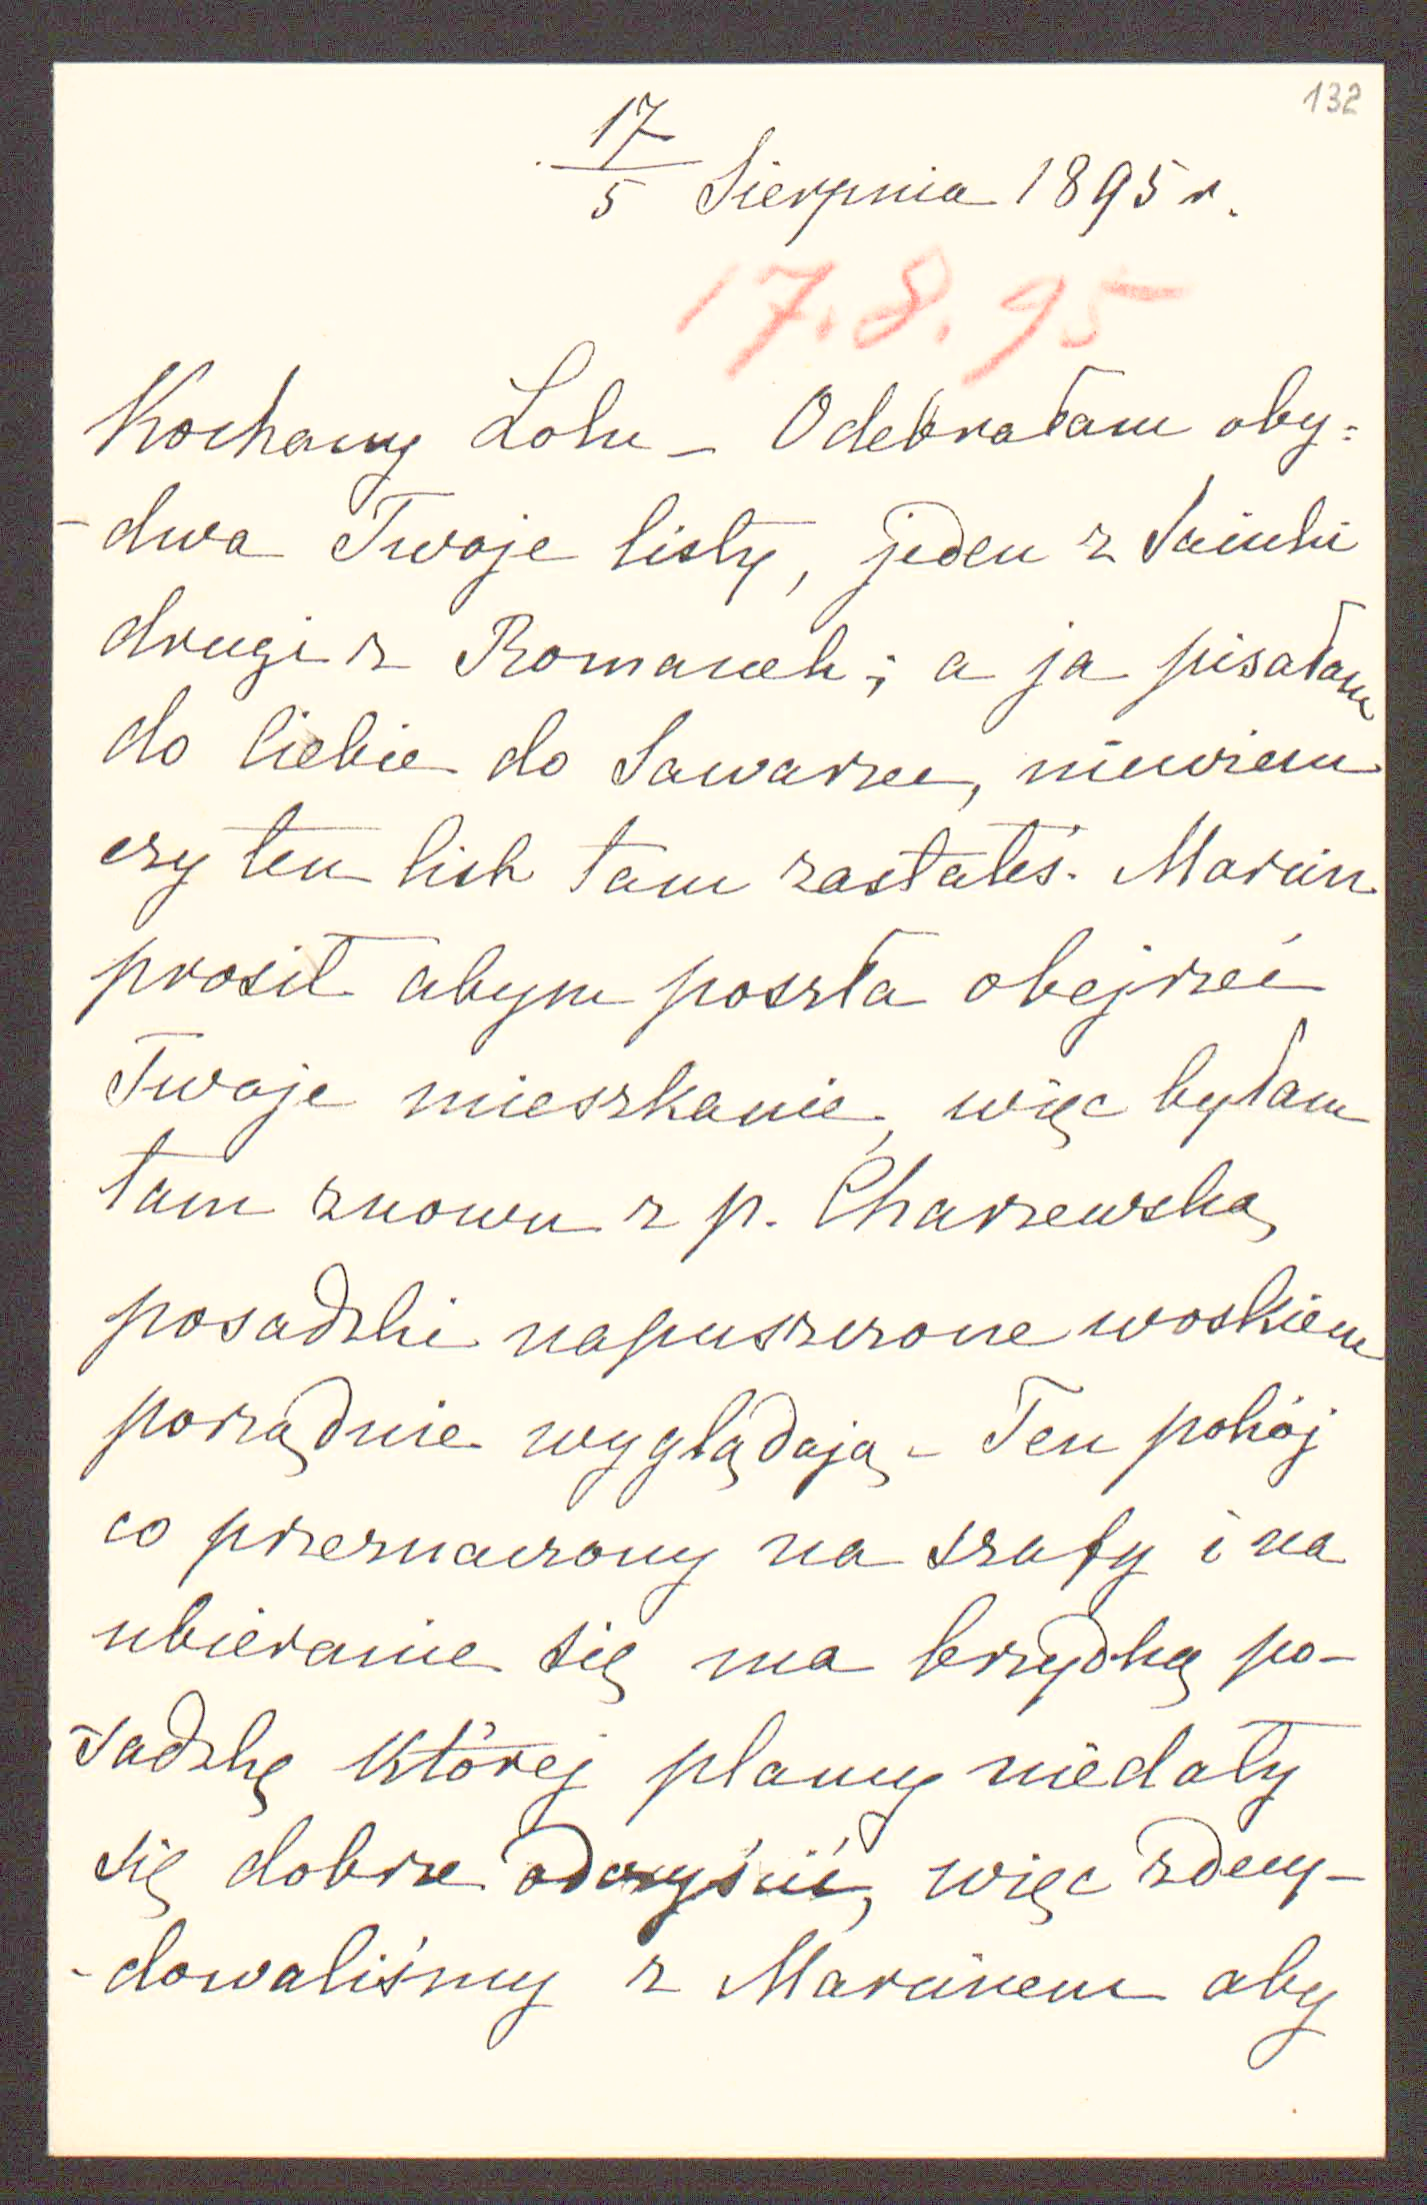 132
17/5 Sierpnia 1895 r.
17.8.95
Kochany Lolu – Odebrałam oby=
-dwa Twoje listy, jeden z
drugi z Romanek; a ja pisałam
do Ciebie do Sawarzec, niewiem
czy ten list tam zastałeś. Marcin
prosił abym poszła obejrzeć
Twoje mieszkanie, więc byłam
tam znowu z p. Charzewską
posadzki napuszczone woskiem
porządnie wyglądają – Ten pokój
co przeznaczony na szafy i na
ubieranie się ma brzydką po-
sadzkę której plamy niedały
się dobrze odczyścić, więc zdecy-
-dowaliśmy z Marcinem aby